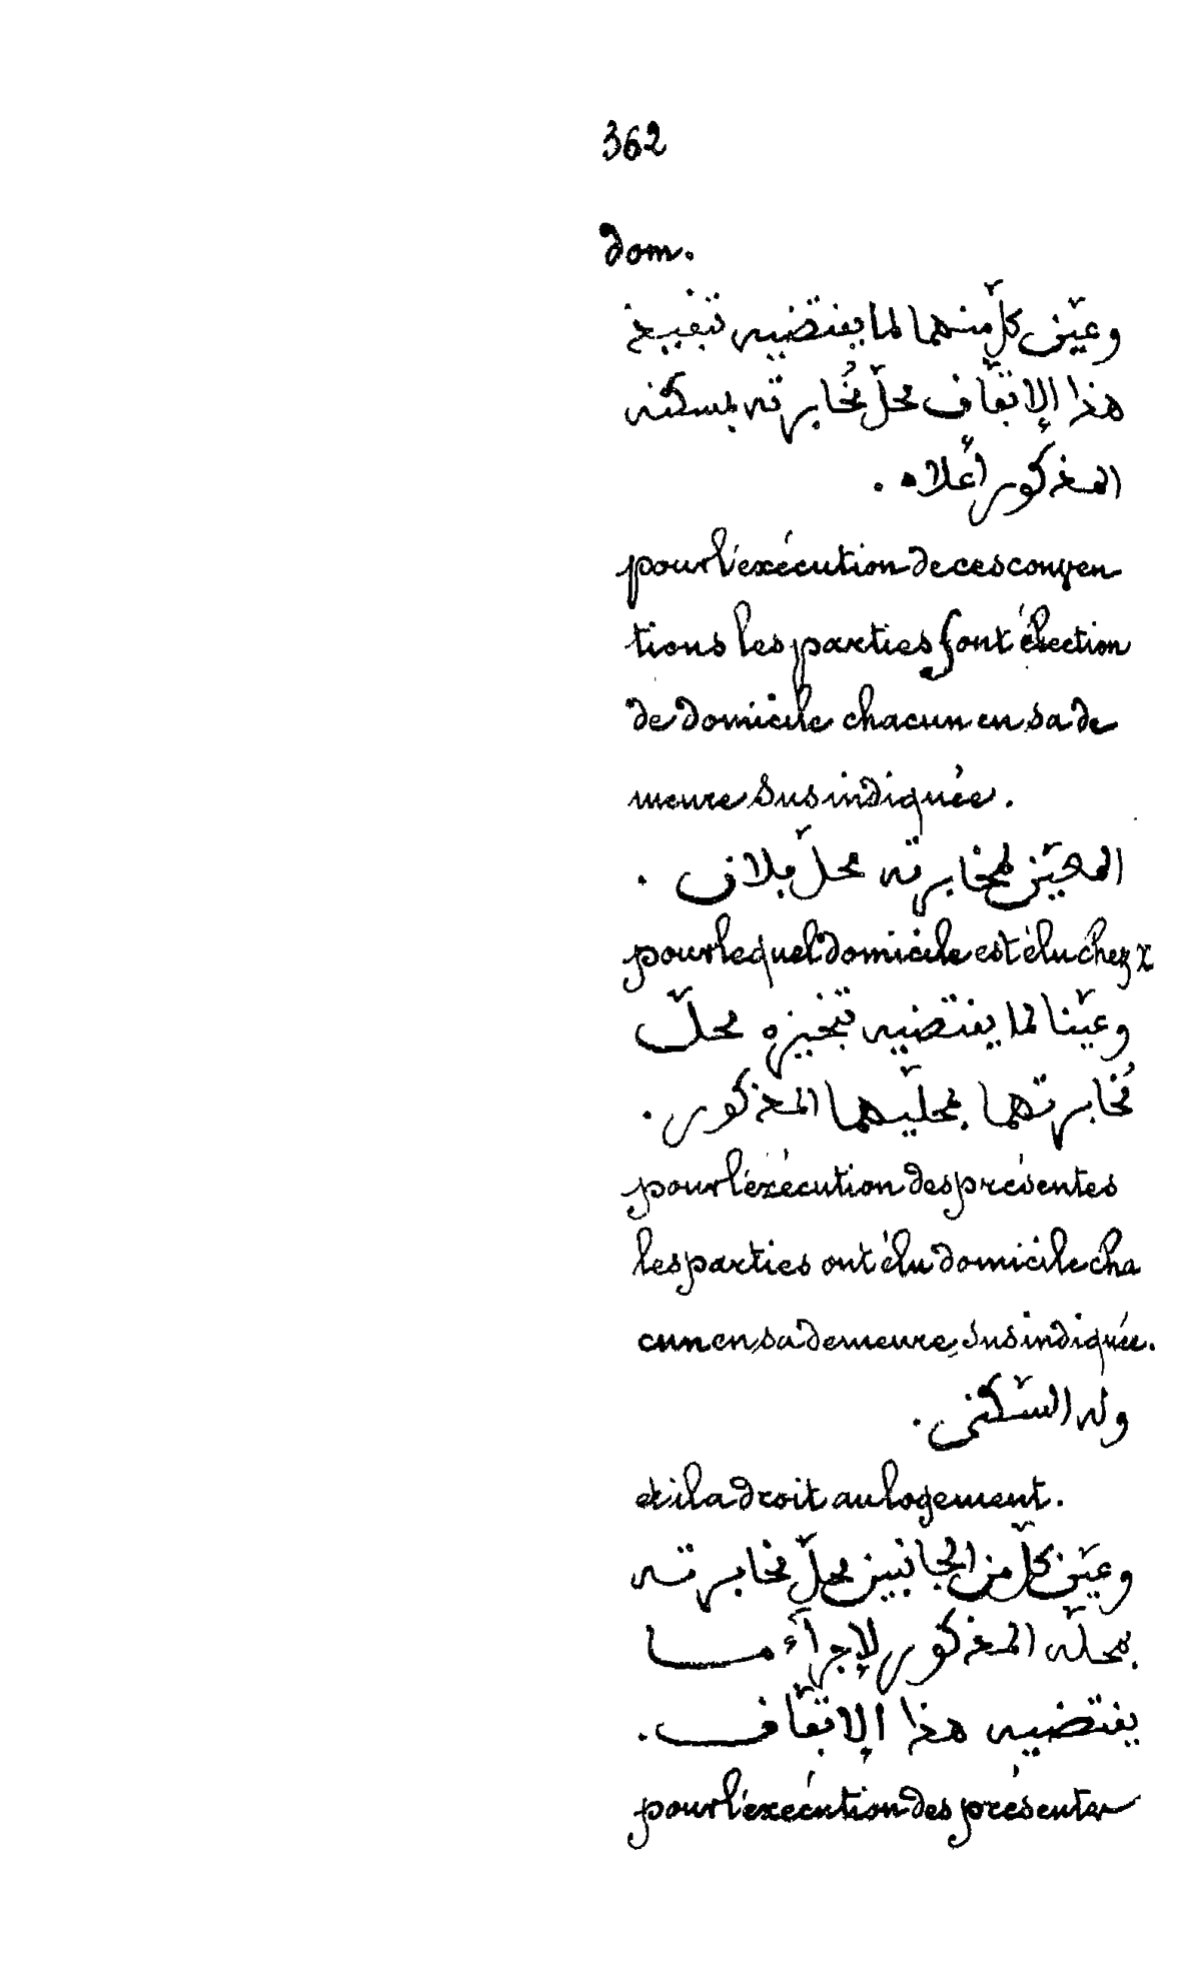 362
dom.
وعيّن كلّ منهما لما يقتضيه تنفيذ
هذا الإتّفاق محلّ مُخابرته بمسكنه
المذكور أعلاه .
pour l'exécution de ces conven
tions les parties font élection
de domicile chacun en sa de
meure susindiquée.
المعيّن لمخابرته محلّ فلان .
pour lequel domicile est élu chez x
وعيّنا لما يقتضيه تنجيزه محلّ
مُخابرتهما بمحلّيهما المذكور .
pour l'éxécution des présentes
les parties ont élu domicile cha
cun en sa demeure susindiquée.
وله السّكنى .
et il a droit au logement.
وعيّن كلّ من الجانبين محلّ مخابرته
بمحلّه المذكور لإجرآء ما
يقتضيه هذا الإتّفاق .
pour l'exécution des présentes